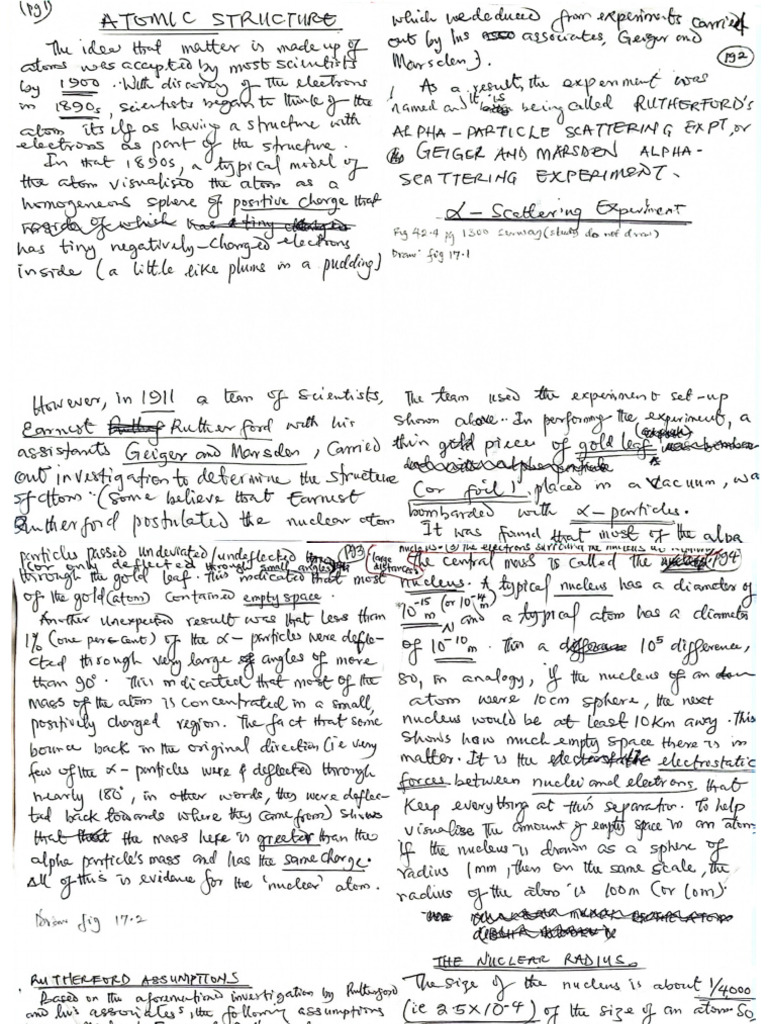 (pg1)
ATOMIC STRUCTURE
The idea that matter is made up of
atoms was accepted by most scientists
by 1900. With discovery of the electrons
in 1890s, scientists began to think of the
atom itself as having a structure with
electrons as part of the structure.
In that 1890s, a typical model of
the atom visualised the atom as a
homogeneous sphere of positive charge that
has tiny negatively-charged electrons
inside (a little like plums in a pudding)
However, in 1911 a team of scientists,
Earnest Rutherford with his
assistants Geiger and Marsden, carried
out investigation to determine the structure
of atom. (Some believe that Earnest
Rutherford postulated the nuclear atom
which we deduced from experiments carried
out by his associates, Geiger and
Marsden).
pg2
As a result, the experiment was
named and it is being called RUTHERFORD'S
ALPHA-PARTICLE SCATTERING EXPT, or
GEIGER AND MARSDEN ALPHA-
SCATTERING EXPERIMENT.
α-Scattering Experiment
Fig 42.4 pg 1300 (study do not draw)
Draw fig 17.1
The team used the experiment set-up
shown above. In performing the experiment, a
thin gold piece of gold leaf
(or foil), placed in a vacuum, was
bombarded with α-particles.
It was found that most of the alpa
pg3
particles passed undeviated/undeflected
(or only deflected through small angles)
through the gold leaf. This indicated that most
of the gold (atom) contained empty space.
Another unexpected result was that less than
1% (one percent) of the α-particles were defle-
cted through very large angles of more
than 90°. This indicated that most of the
mass of the atom is concentrated in a small,
positively charged region. The fact that some
bounce back in the original direction (ie very
few of the α-particles were deflected through
nearly 180°, in other words, they were deflec-
ted back towards where they came from) shows
that the mass here is greater than the
alpha particle's mass and has the same charge.
All of this is evidence for the 'nuclear' atom.
Draw fig 17.2
RUTHERFORD ASSUMPTIONS
Based on the aforementioned investigation by Rutherford
and his associates, the following assumptions
large
distances
pg4
the central mass is called the
nucleus. A typical nucleus has a diameter of
10⁻¹⁵ m (or 10⁻¹⁴ m) and a typical atom has a diameter
of 10⁻¹⁰ m. This a 10⁵ difference,
so, in analogy, if the nucleus of an
atom were 10cm sphere, the next
nucleus would be at least 10km away. This
shows how much empty space there is in
matter. It is the electrostatic
forces between nuclei and electrons that
keep everything at this separation. To help
visualise the amount of empty space in an atom
if the nucleus is drawn as a sphere of
radius 1mm, then on the same scale, the
radius of the atom is 100m (or 10m).
THE NUCLEAR RADIUS.
The size of the nucleus is about 1/4000
(ie 2.5X10-4) of the size of an atom. So,